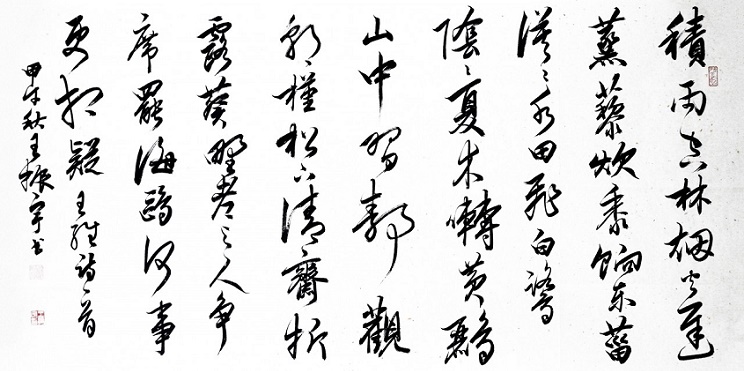 積雨空林烟火遲
蒸藜炊黍餉東菑
漠々水田飛白鷺
陰々夏木囀黃鸝
山中習靜觀
朝槿松下清齋折
露葵野老与人爭
席罷海鷗何事
更相疑 王維詩一首
甲午秋王振宇書